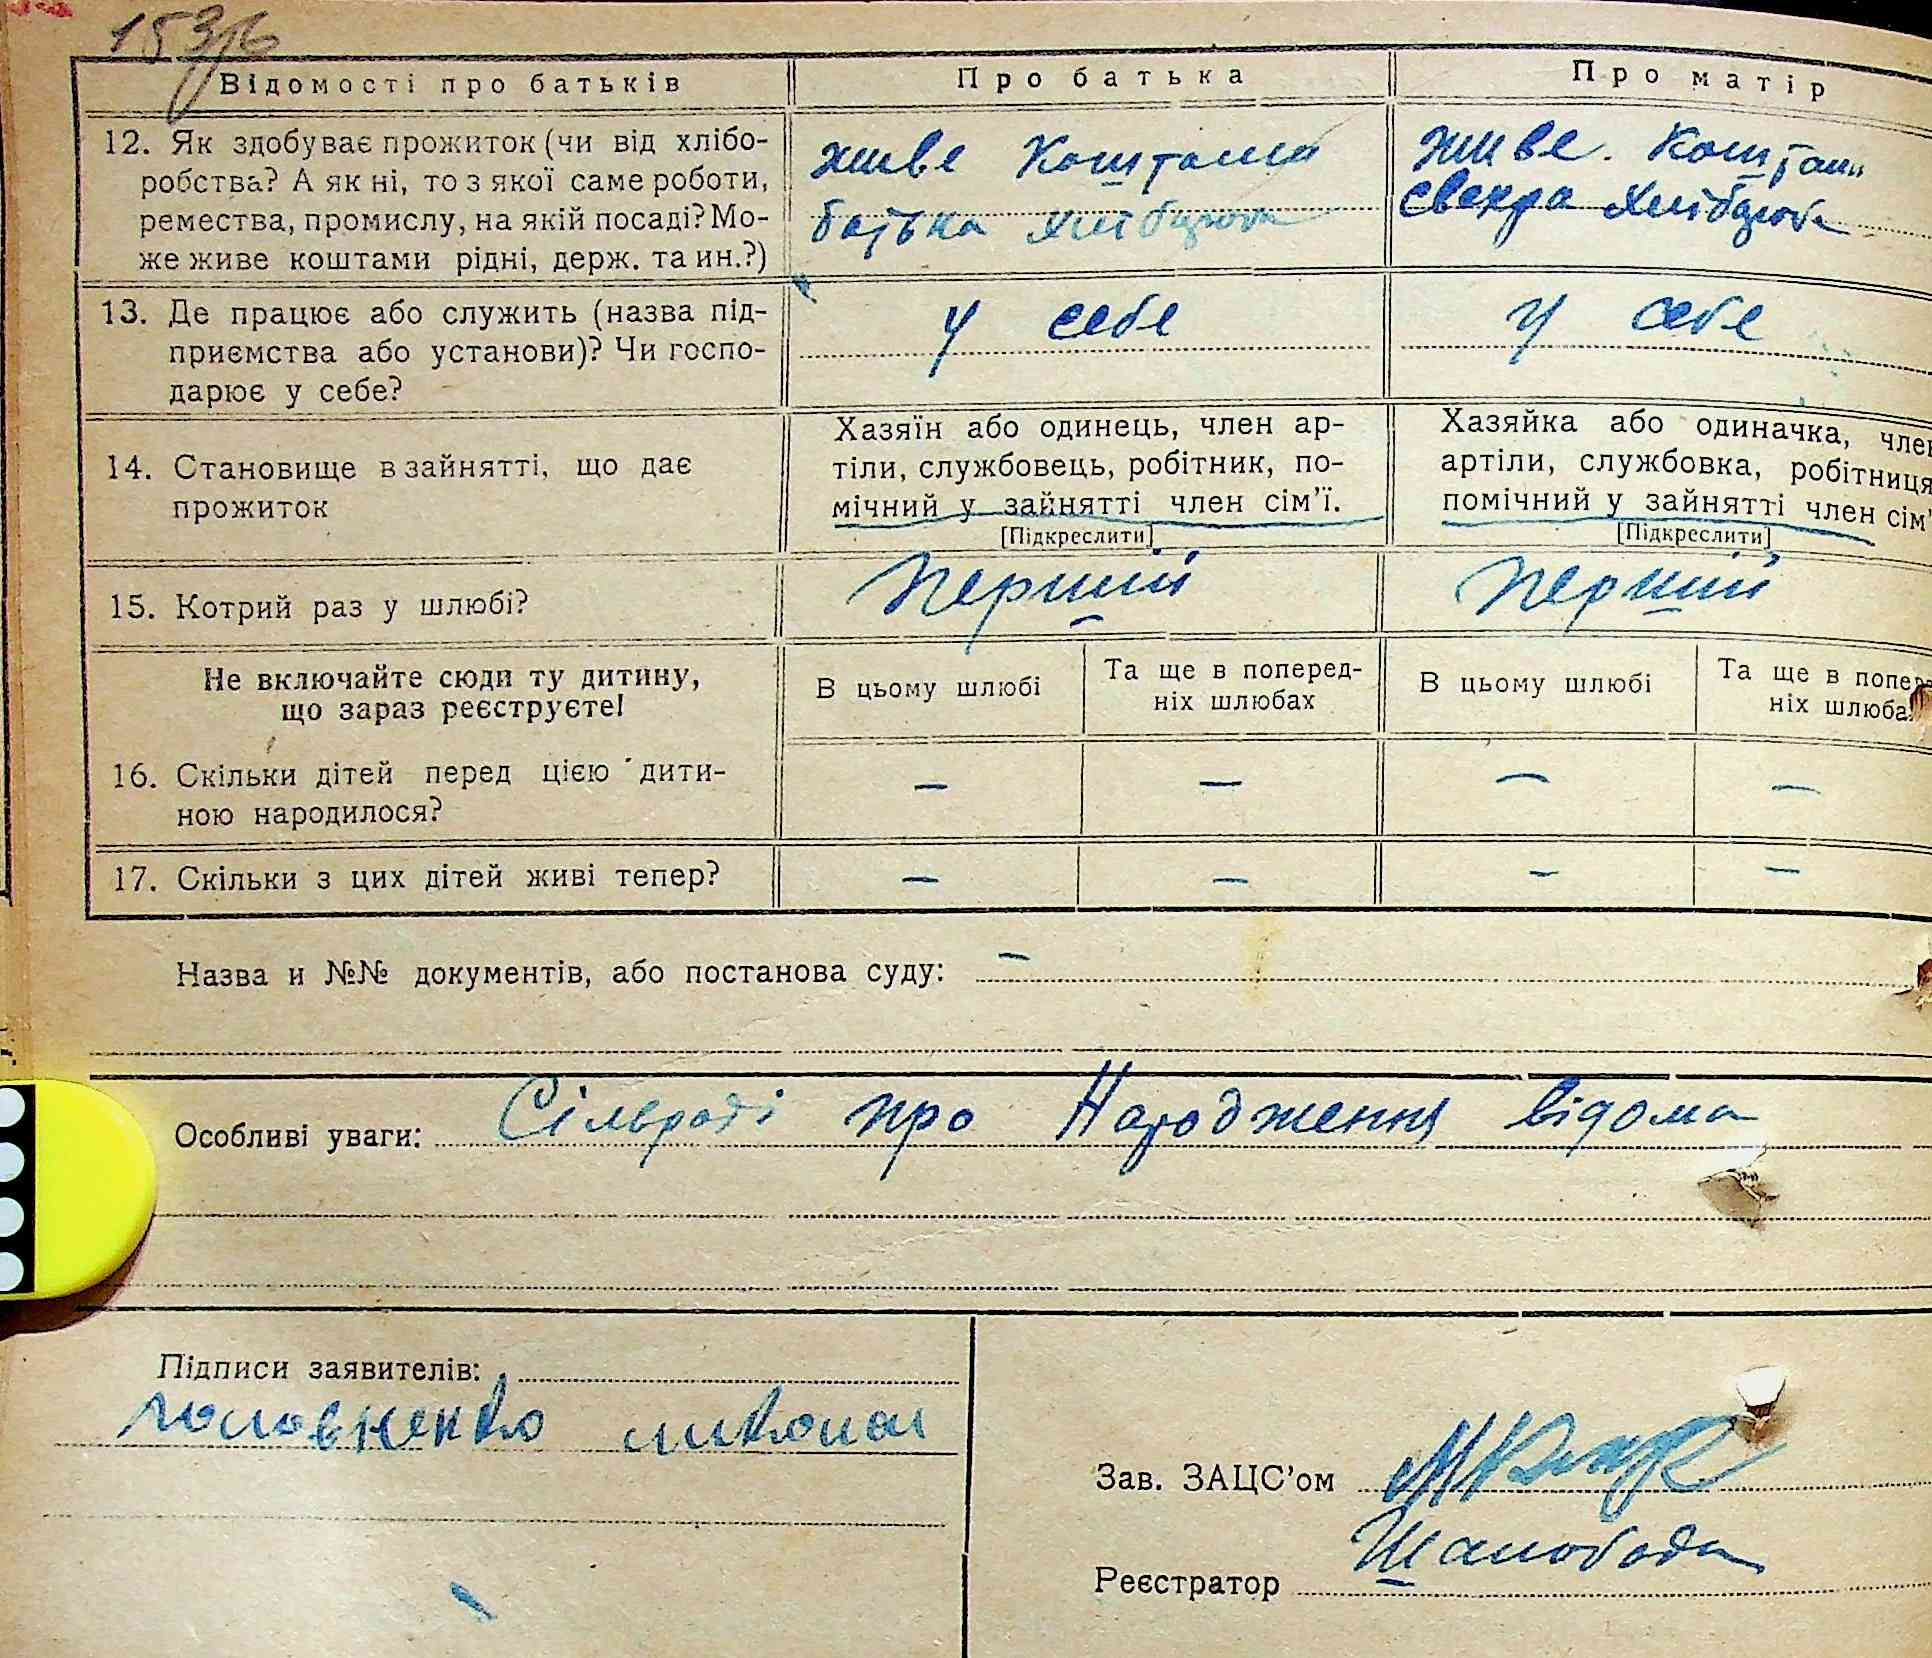 153/6
Відомості про батьків
Про батька
Про матір
12. Як здобуває прожиток (чи від хлібо-
робства? А як ні, то з якої саме роботи,
ремества, промислу, на якій посаді? Мо-
же живе коштами рідні, держ. та ин.?)
живе Коштами
батька хлібороба
живе. Коштами
свекра хлібороба
13. Де працює або служить (назва під-
приємства або установи)? Чи госпо-
дарює у себе?
у себе
у себе
14. Становище в зайнятті, що дає
прожиток
Хазяїн або одинець, член ар-
тіли, службовець, робітник, по-
мічний у зайнятті член сім'ї.
[Підкреслити]
Хазяйка або одиначка, член
артіли, службовка, робітниця
помічний у зайнятті член сім'
[Підкреслити]
15. Котрий раз у шлюбі?
Перший
Перший
Не включайте сюди ту дитину,
що зараз реєструєте!
В цьому шлюбі
Та ще в поперед-
ніх шлюбах
В цьому шлюбі
Та ще в попер
ніх шлюба
16. Скільки дітей перед цією дити-
ною народилося?
— — — —
17. Скільки з цих дітей живі тепер?
— — — —
Назва и №№ документів, або постанова суду: —
Особливі уваги: Сільраді про Народження відома
Підписи заявителів:
головненко микола
Зав. ЗАЦС'ом
Реєстратор